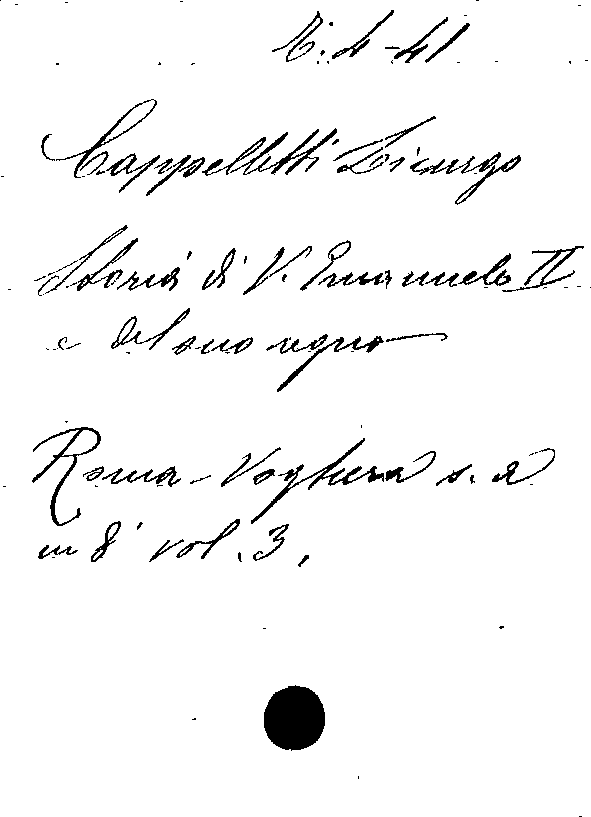 4-41
Cappelletti Licurgo
Storia di V. Emanuele II
e del suo regno
Roma - Voghera s. a
in 8° vol. 3.